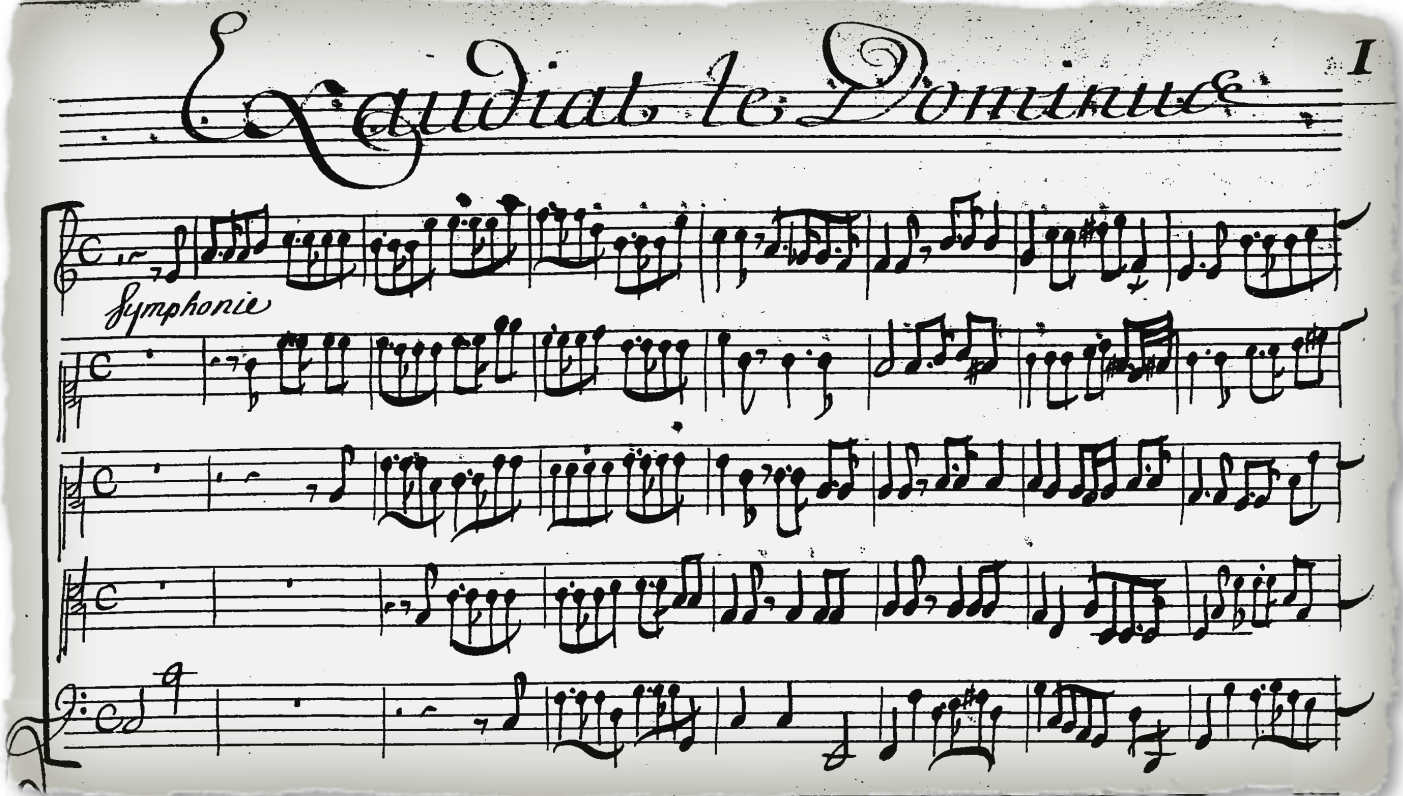 I
Exaudiat te Dominus
Symphonie